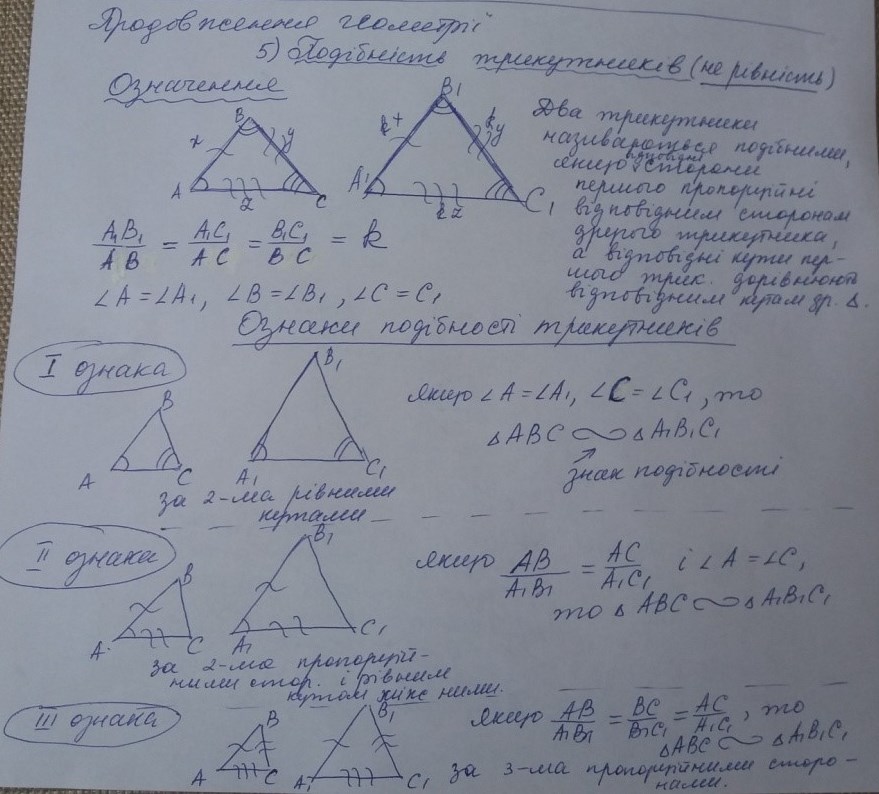 Продовження геометрії
5) Подібність трикутників (не рівність)
Означення
B
x
y
A
z
C
B1
kx
ky
A1
kz
C1
Два трикутники
називаються подібними,
якщо відповідні сторони
першого пропорційні
відповідним сторонам
другого трикутника,
а відповідні кути пер-
шого трик. дорівнюють
відповідним кутам др. Δ.
A1B1/AB = A1C1/AC = B1C1/BC = k
∠A = ∠A1, ∠B = ∠B1, ∠C = C1
Ознаки подібності трикутників
I ознака
B
A
C
B1
A1
C1
за 2-ма рівними
кутами
Якщо ∠A = ∠A1, ∠C = ∠C1, то
ΔABC ∽ ΔA1B1C1
знак подібності
II ознака
B
A
C
B1
A1
C1
за 2-ма пропорцій-
ними стор. і рівним
кутом між ними.
Якщо AB/A1B1 = AC/A1C1 і ∠A = ∠C,
то ΔABC ∽ ΔA1B1C1
III ознака
B
A
C
B1
A1
C1
Якщо AB/A1B1 = BC/B1C1 = AC/A1C1, то
ΔABC ∽ ΔA1B1C1
за 3-ма пропорційними сторо-
нами.